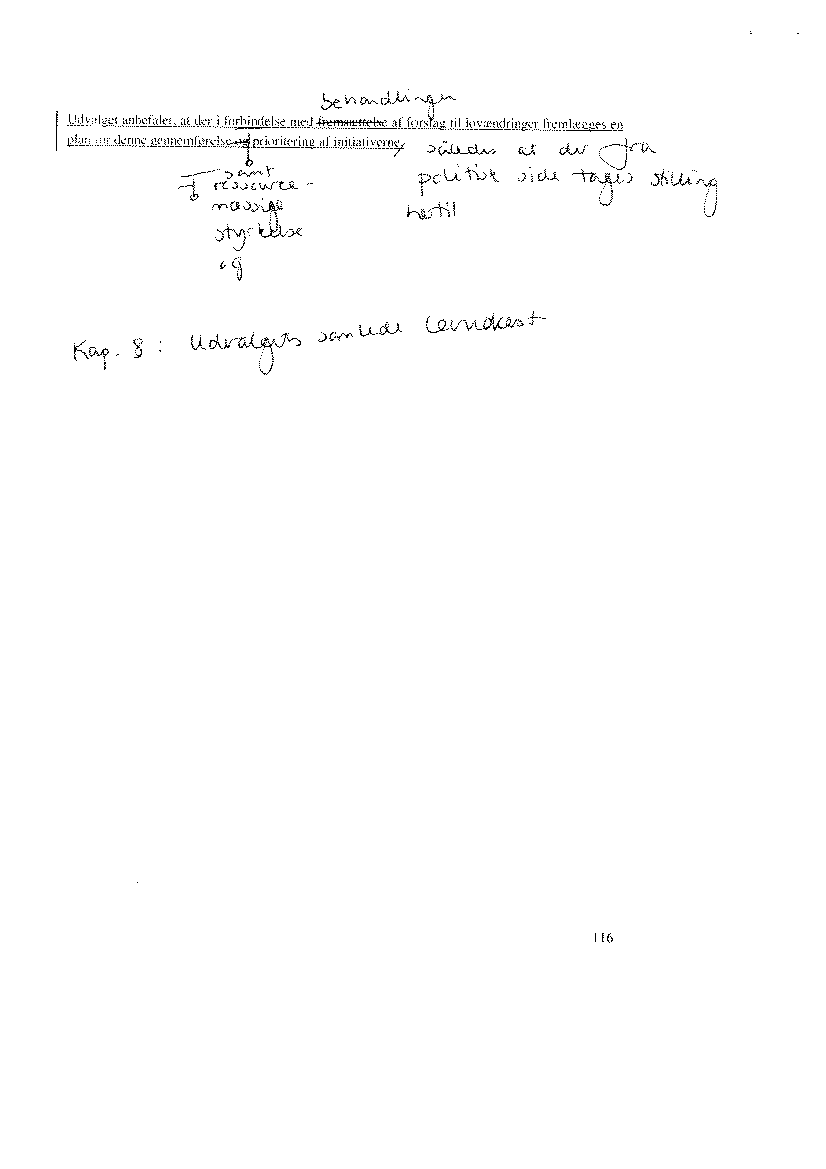 behandlingen
Udvalget anbefaler, at der i forbindelse med fremsættelse af forslag til lovændringer fremlægges en
plan for denne gennemførelse og prioritering af initiativerne, således at der fra
politisk side tages stilling
hertil
samt
ressource-
mæssige
styrkelse
og
Kap. 8 : Udvalgets samlede lovudkast
116